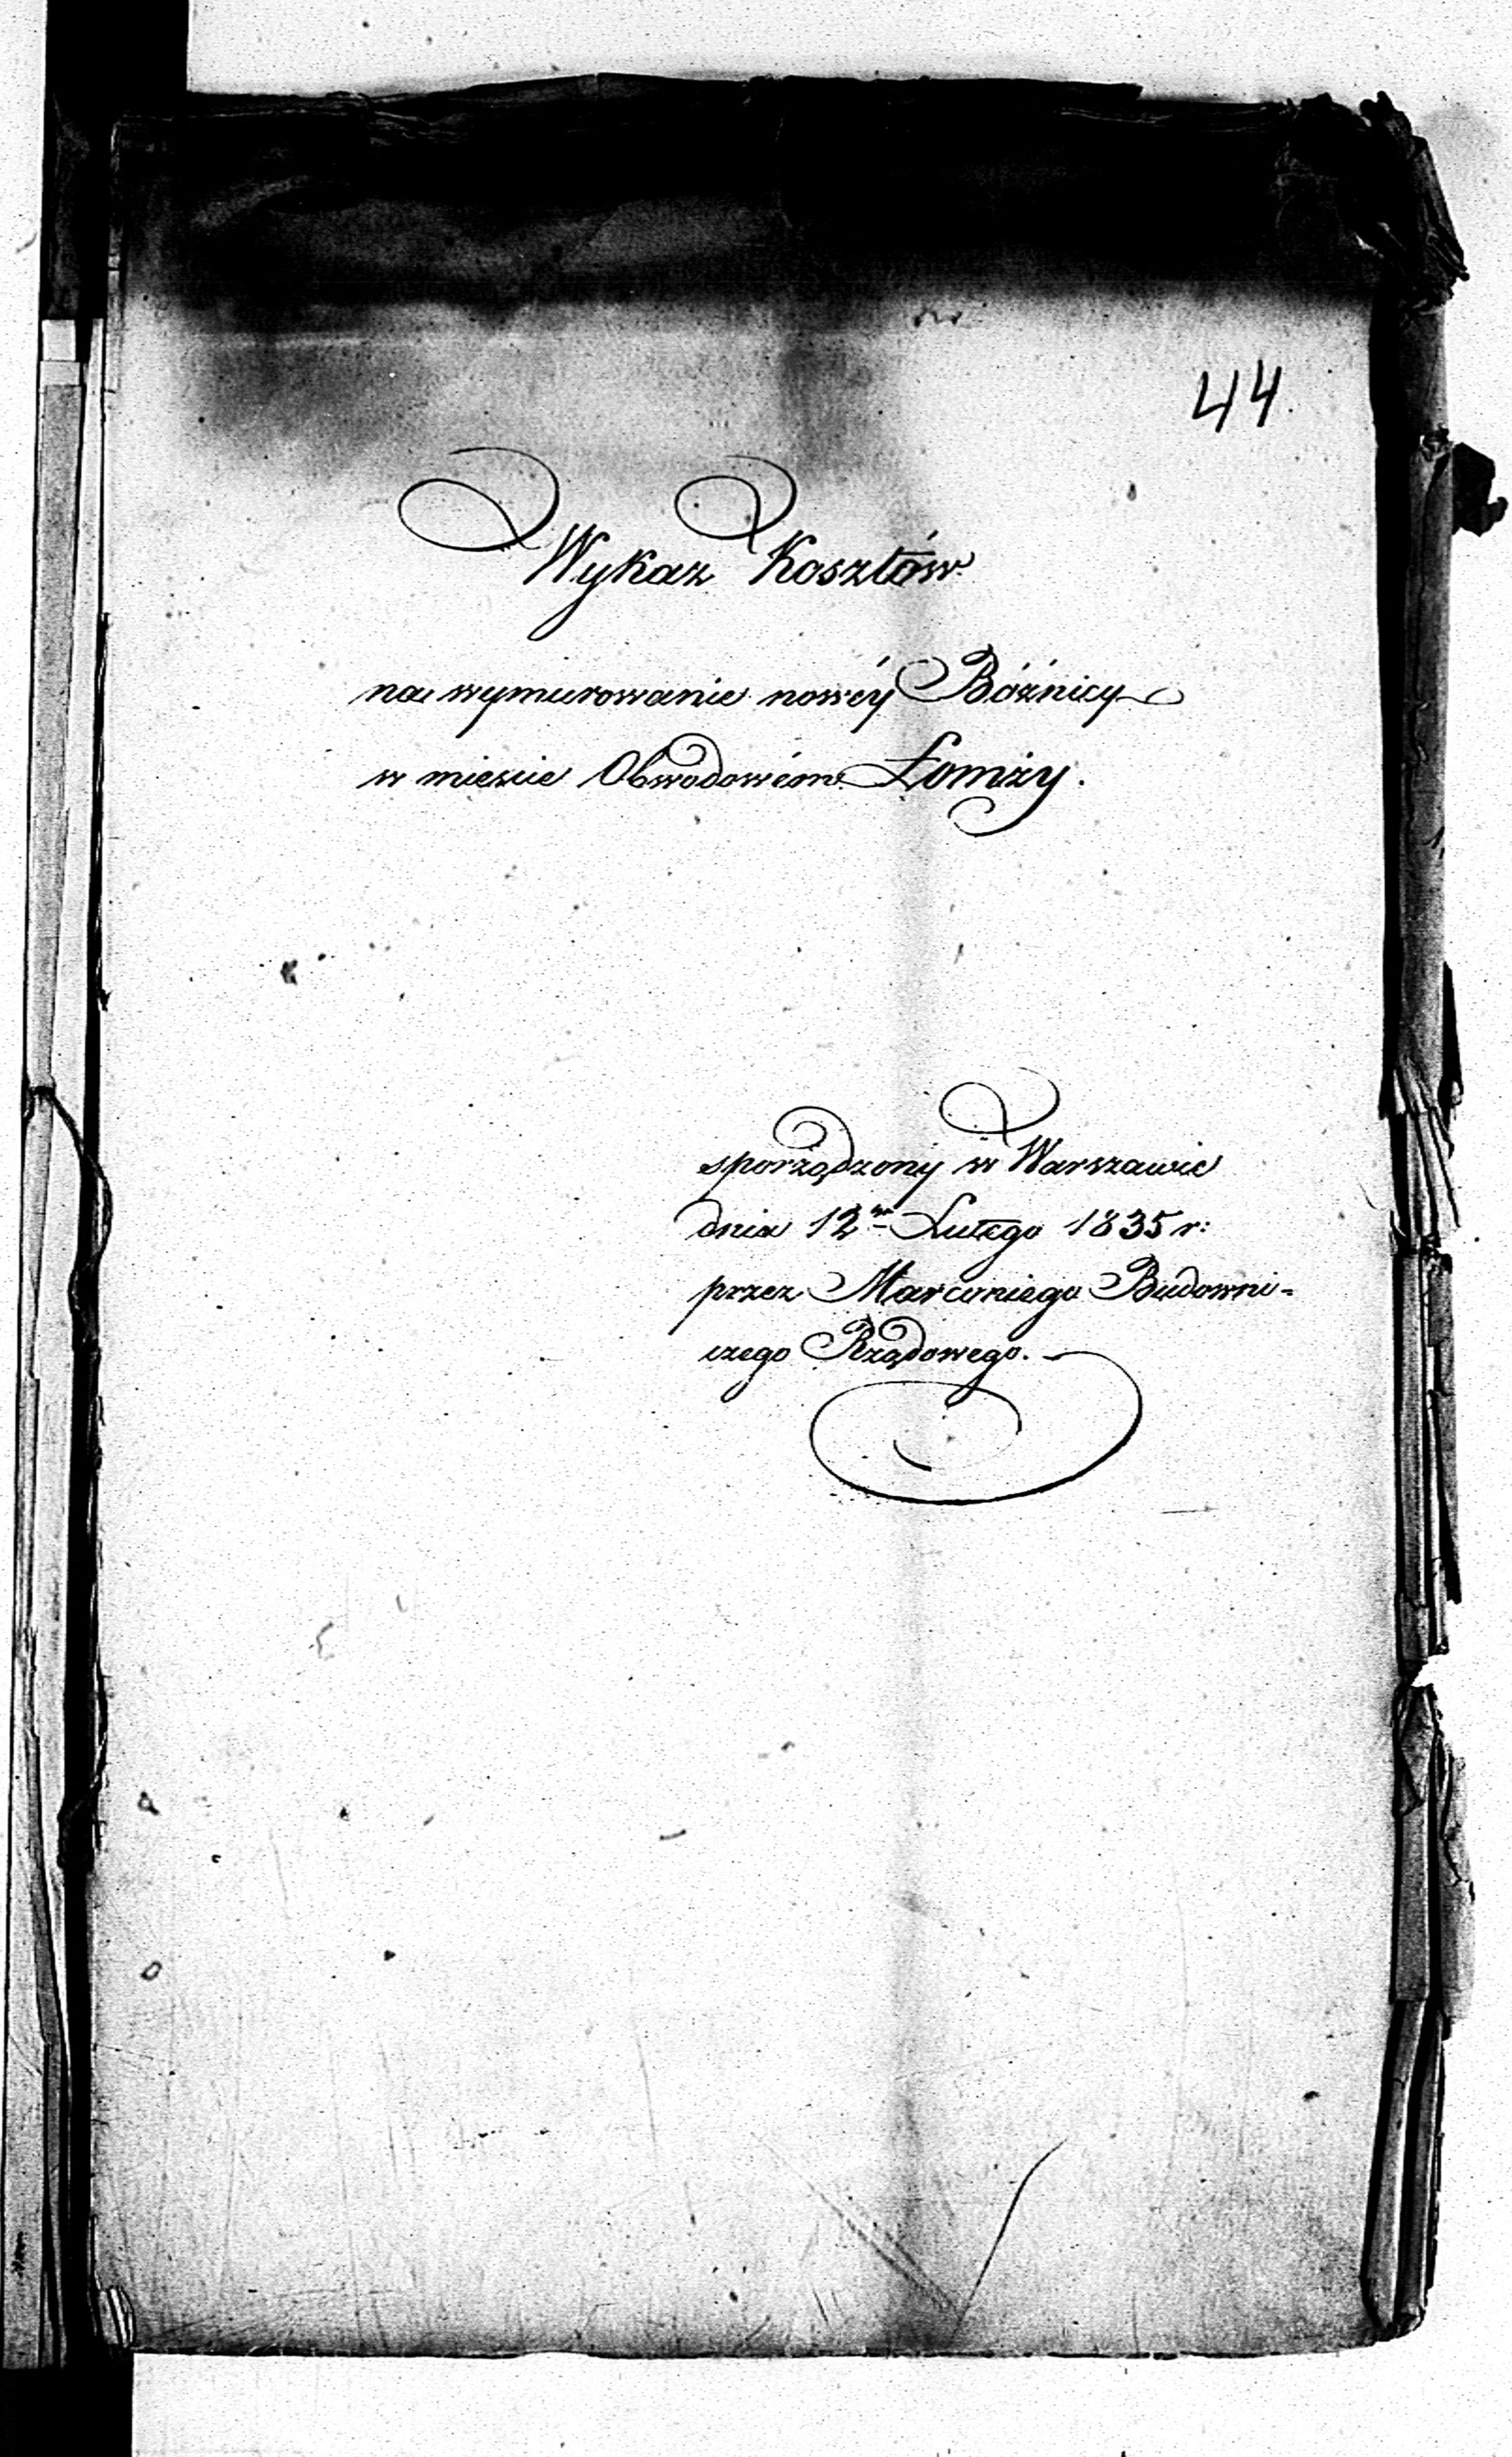 44.
Wykaz Kosztów
na wymurowanie nowéy Bóźnicy
w mieście Obwodowém Łomży.
sporządzony w Warszawie
dnia 12<sup>go</sup> Lutego 1835 r:
przez Marconiego Budowni=
czego Rządowego.